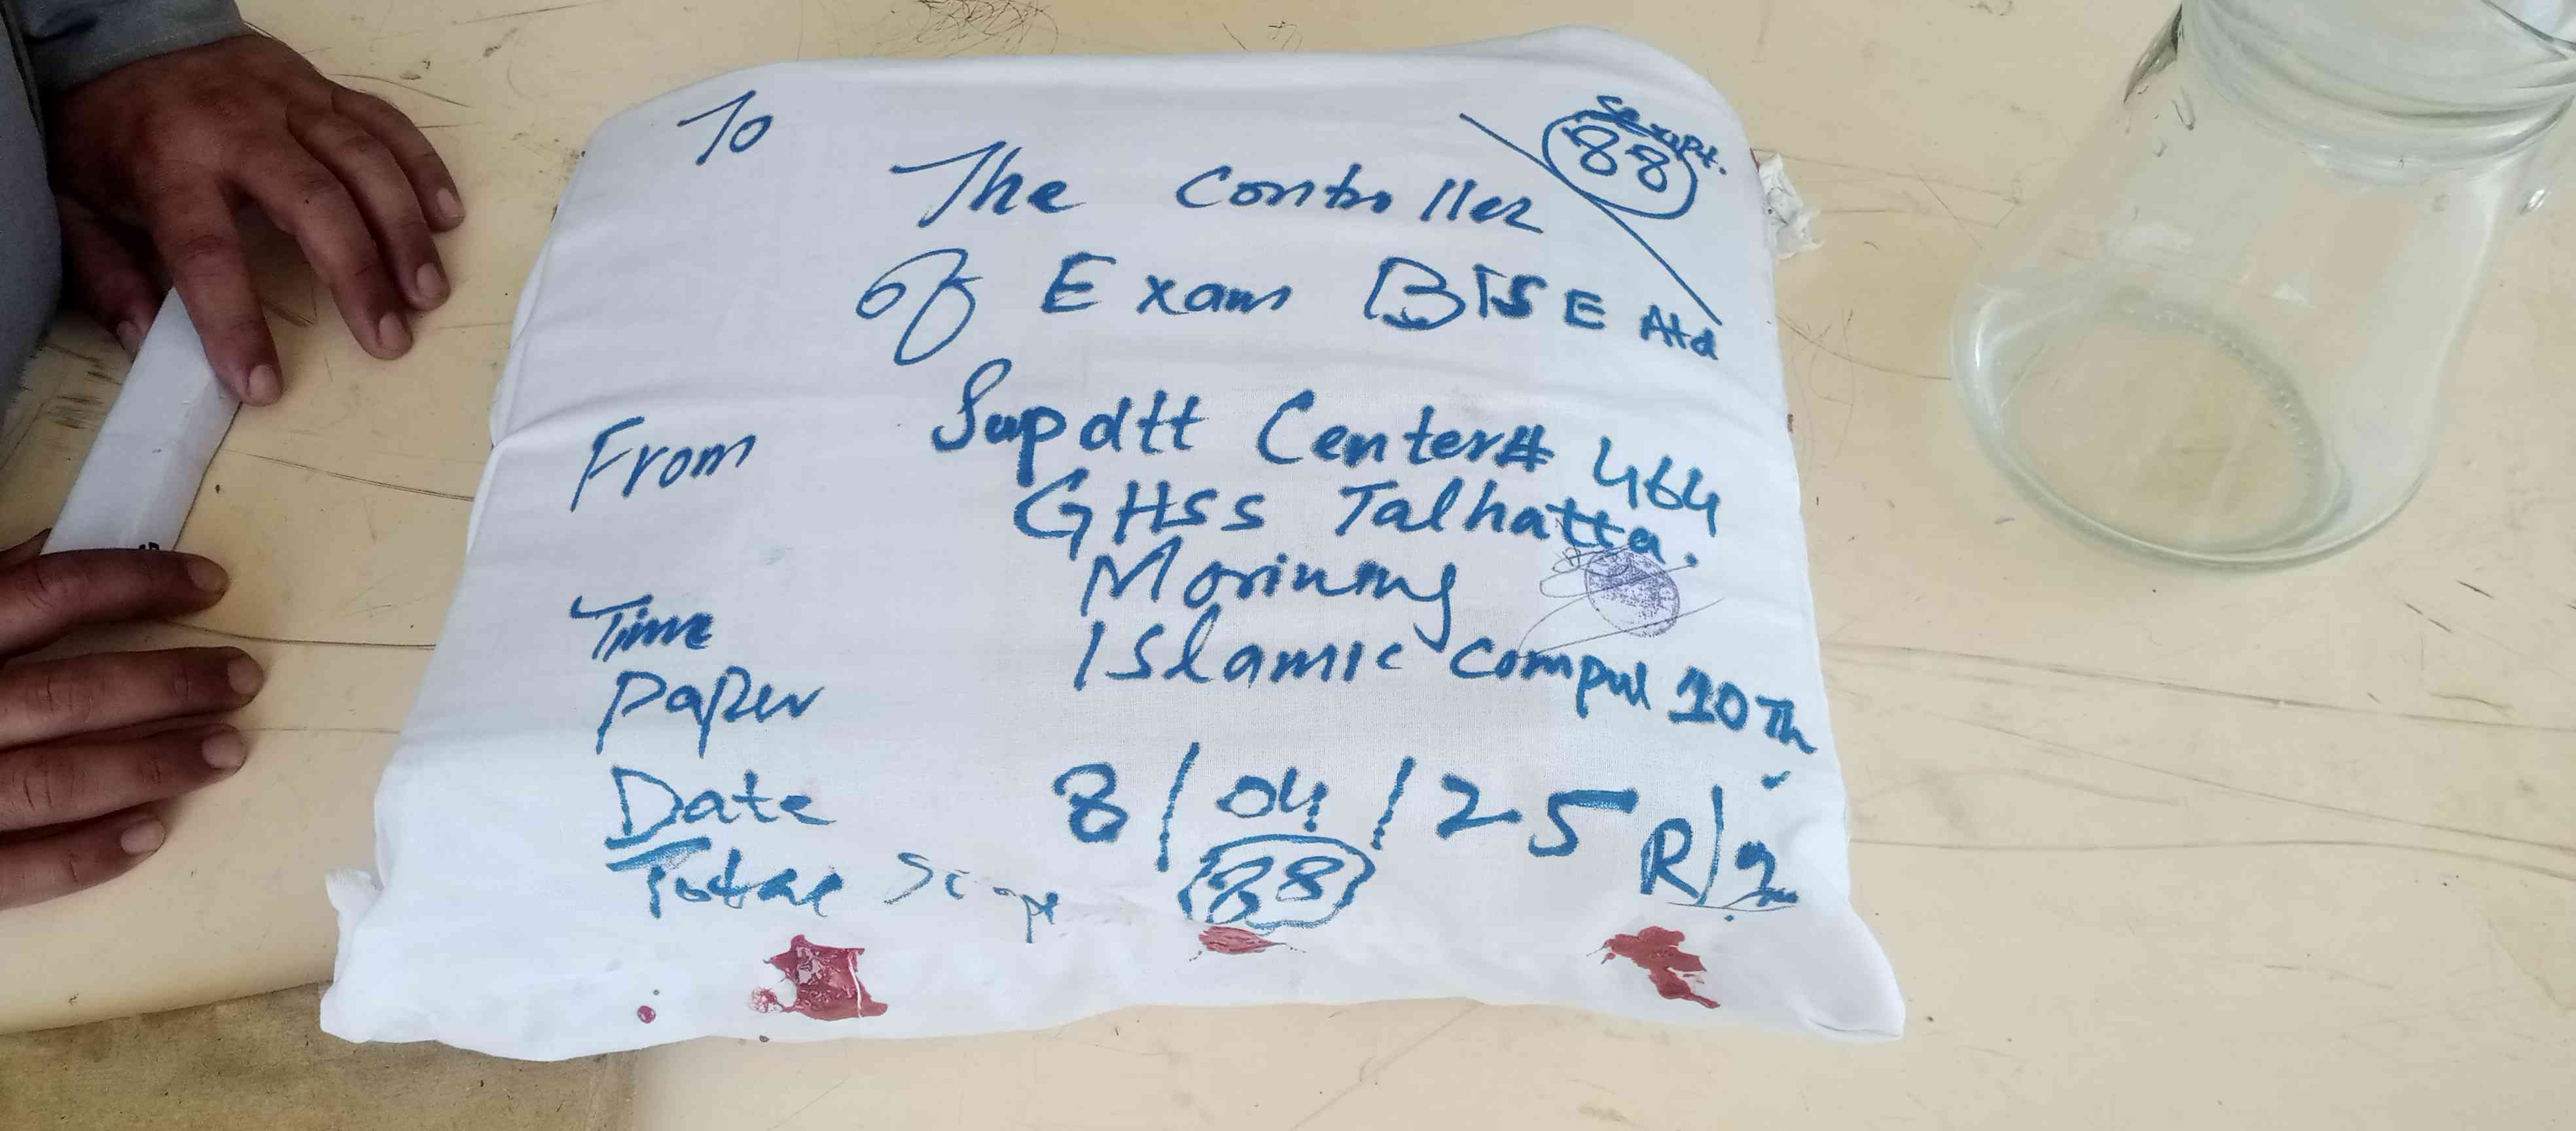 To
88
The Controller
of Exam BISE Atd
From Supdtt Center# 464
GHSS Talhatta.
Time Morinmg
Paper Islamic Compul 10Th
Date 8/04/25 R/2
Total 88